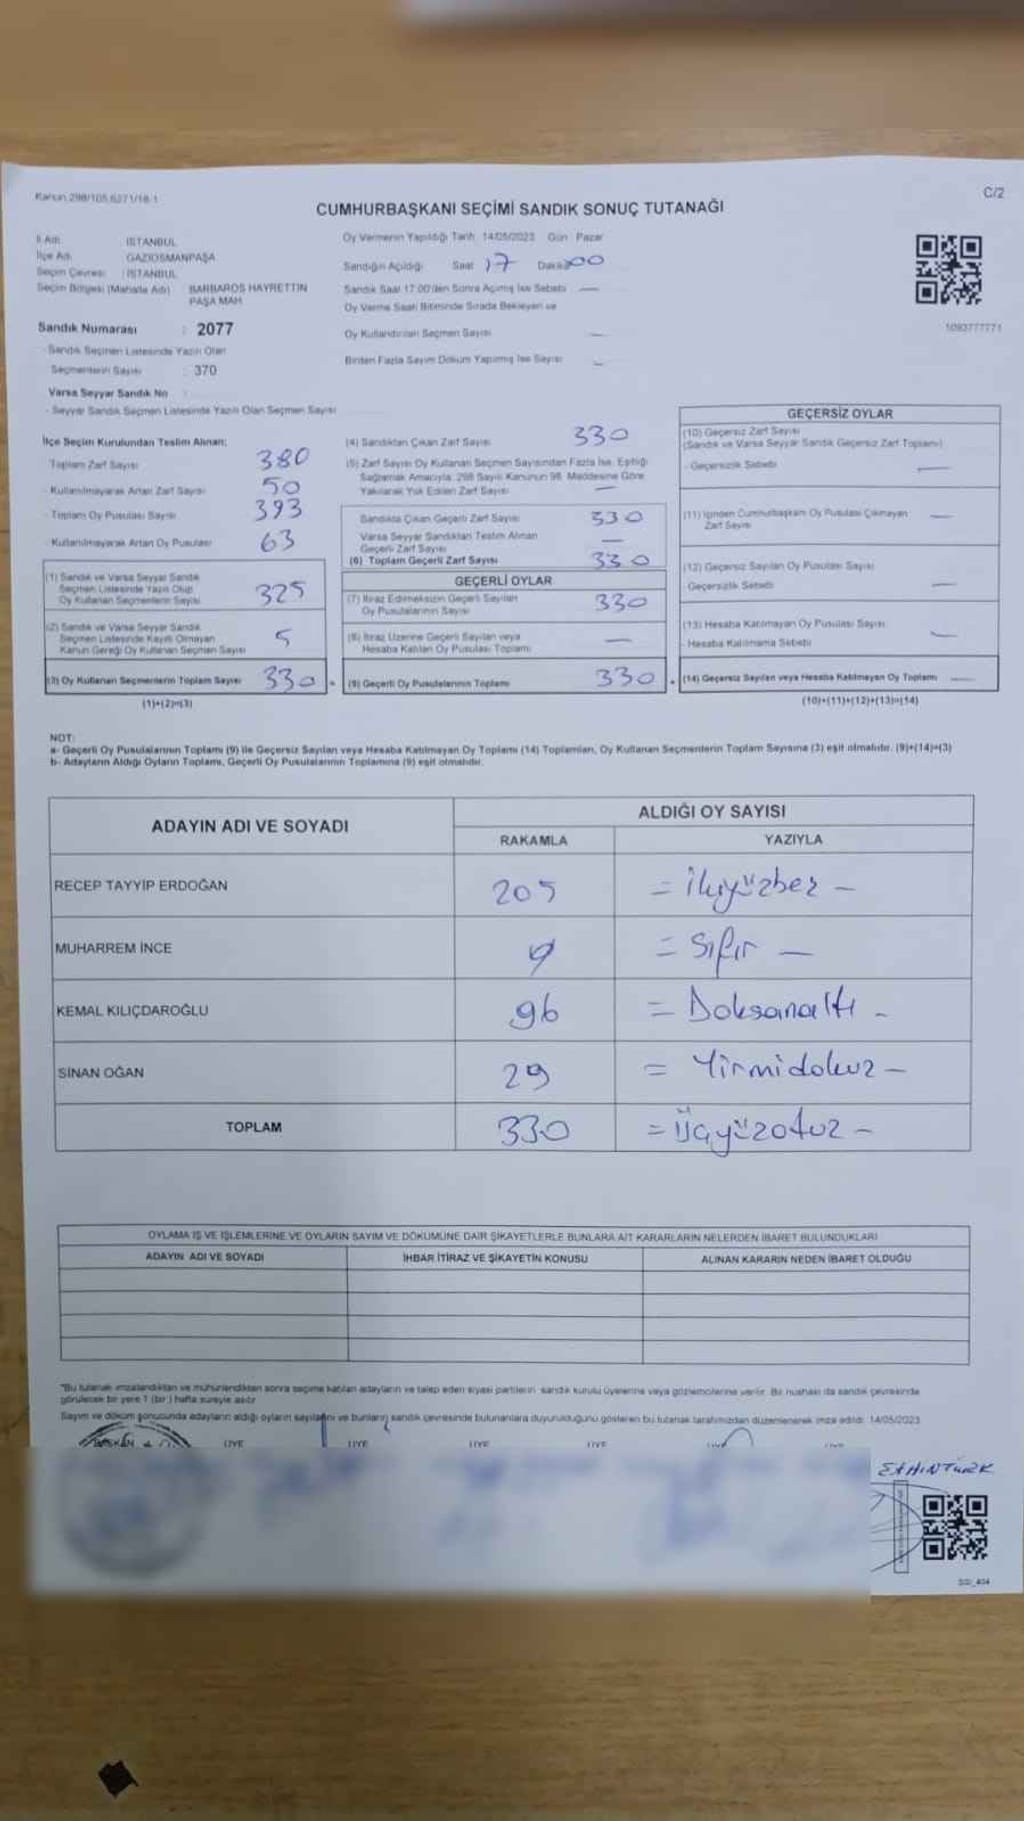 Kanun 298/105,6271/18-1
C/2
CUMHURBAŞKANI SEÇİMİ SANDIK SONUÇ TUTANAĞI
İl Adı : İSTANBUL
İlçe Adı : GAZİOSMANPAŞA
Seçim Çevresi : İSTANBUL
Seçim Bölgesi (Mahalle Adı) BARBAROS HAYRETTİN
PAŞA MAH
Sandık Numarası : 2077
- Sandık Seçmen Listesinde Yazılı Olan
Seçmenlerin Sayısı : 370
Varsa Seyyar Sandık No
- Seyyar Sandık Seçmen Listesinde Yazılı Olan Seçmen Sayısı
Oy Vermenin Yapıldığı Tarih: 14/05/2023 Gün : Pazar
Sandığın Açıldığı Saat 17 Dakika 00
Sandık Saat 17:00'den Sonra Açılmış İse Sebebi —
Oy Verme Saati Bitiminde Sırada Bekleyen ve
Oy Kullandırılan Seçmen Sayısı —
Birden Fazla Sayım Döküm Yapılmış İse Sayısı —
1093777771
İlçe Seçim Kurulundan Teslim Alınan;
Toplam Zarf Sayısı 380
- Kullanılmayarak Artan Zarf Sayısı 50
- Toplam Oy Pusulası Sayısı 393
- Kullanılmayarak Artan Oy Pusulası 63
(1) Sandık ve Varsa Seyyar Sandık
Seçmen Listesinde Yazılı Olup
Oy Kullanan Seçmenlerin Sayısı 325
(2) Sandık ve Varsa Seyyar Sandık
Seçmen Listesinde Kayıtlı Olmayan
Kanun Gereği Oy Kullanan Seçmen Sayısı 5
(3) Oy Kullanan Seçmenlerin Toplam Sayısı 330
(1)+(2)=(3)
(4) Sandıktan Çıkan Zarf Sayısı 330
(5) Zarf Sayısı Oy Kullanan Seçmen Sayısından Fazla İse, Eşitliği
Sağlamak Amacıyla, 298 Sayılı Kanunun 98. Maddesine Göre
Yakılarak Yok Edilen Zarf Sayısı —
Sandıkta Çıkan Geçerli Zarf Sayısı 330
Varsa Seyyar Sandıktan Teslim Alınan
Geçerli Zarf Sayısı —
(6) Toplam Geçerli Zarf Sayısı 330
GEÇERLİ OYLAR
(7) İtiraz Edilmeksizin Geçerli Sayılan
Oy Pusulalarının Sayısı 330
(8) İtiraz Üzerine Geçerli Sayılan veya
Hesaba Katılan Oy Pusulası Toplamı —
(9) Geçerli Oy Pusulalarının Toplamı 330
GEÇERSİZ OYLAR
(10) Geçersiz Zarf Sayısı
(Sandık ve Varsa Seyyar Sandık Geçersiz Zarf Toplamı)
- Geçersizlik Sebebi —
(11) İçinden Cumhurbaşkanı Oy Pusulası Çıkmayan
Zarf Sayısı —
(12) Geçersiz Sayılan Oy Pusulası Sayısı
Geçersizlik Sebebi —
(13) Hesaba Katılmayan Oy Pusulası Sayısı
- Hesaba Katılmama Sebebi —
(14) Geçersiz Sayılan veya Hesaba Katılmayan Oy Toplamı —
(10)+(11)+(12)+(13)=(14)
NOT:
a- Geçerli Oy Pusulalarının Toplamı (9) ile Geçersiz Sayılan veya Hesaba Katılmayan Oy Toplamı (14) Toplamları, Oy Kullanan Seçmenlerin Toplam Sayısına (3) eşit olmalıdır. (9)+(14)=(3)
b- Adayların Aldığı Oyların Toplamı, Geçerli Oy Pusulalarının Toplamına (9) eşit olmalıdır.
ADAYIN ADI VE SOYADI
ALDIĞI OY SAYISI
RAKAMLA YAZIYLA
RECEP TAYYİP ERDOĞAN 205 = İkiyüzbeş —
MUHARREM İNCE 0 = Sıfır —
KEMAL KILIÇDAROĞLU 96 = Doksanaltı -
SİNAN OĞAN 29 = Yirmidokuz —
TOPLAM 330 = Üçyüzotuz —
OYLAMA İŞ VE İŞLEMLERİNE VE OYLARIN SAYIM VE DÖKÜMÜNE DAİR ŞİKAYETLERLE BUNLARA AİT KARARLARIN NELERDEN İBARET BULUNDUKLARI
ADAYIN ADI VE SOYADI İHBAR İTİRAZ VE ŞİKAYETİN KONUSU ALINAN KARARIN NEDEN İBARET OLDUĞU
"Bu tutanak imzalandıktan ve mühürlendikten sonra seçime katılan adayların ve talep eden siyasi partilerin sandık kurulu üyelerine veya gözlemcilerine verilir. Bu nüshası da sandık çevresinde
görülecek bir yere 1 (bir ) hafta süreyle asılır
Sayım ve döküm sonucunda adayların aldığı oyların sayılarını ve bunların sandık çevresinde bulunanlara duyurulduğunu gösteren bu tutanak tarafımızdan düzenlenerek imza edildi. 14/05/2023
BAŞKAN ÜYE ÜYE ÜYE ÜYE